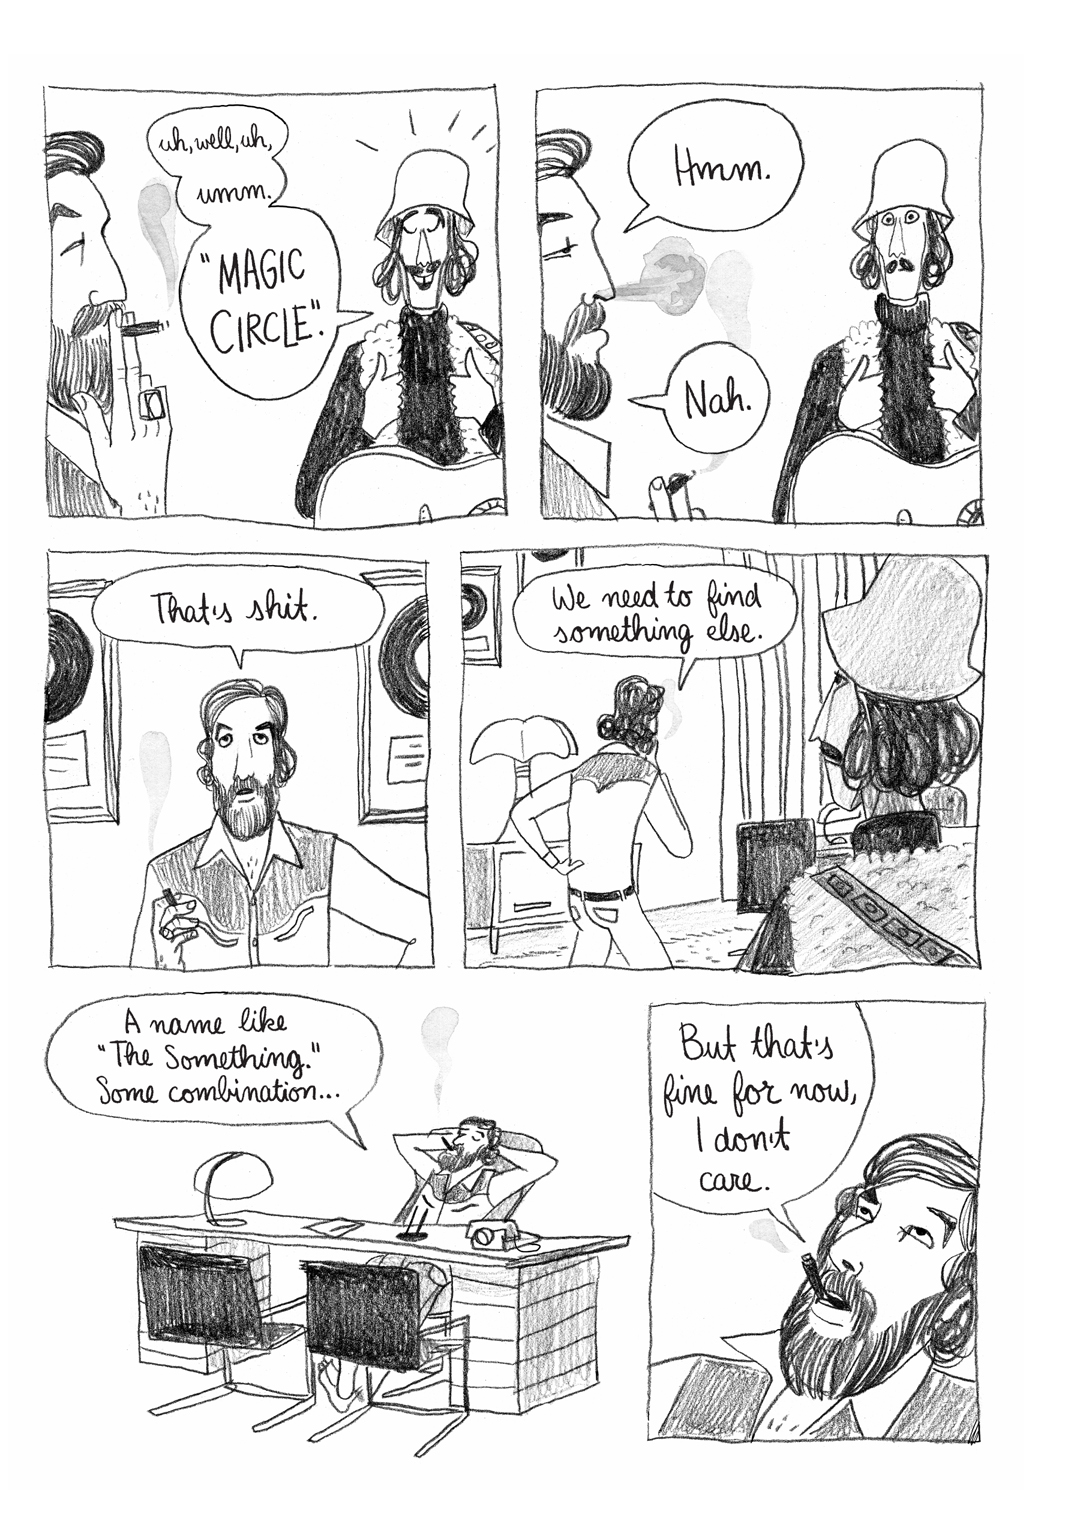 uh, well, uh,
umm.
"MAGIC
CIRCLE".
Hmm.
Nah.
That's shit.
We need to find
something else.
A name like
"The Something."
Some combination...
But that's
fine for now,
I don't
care.